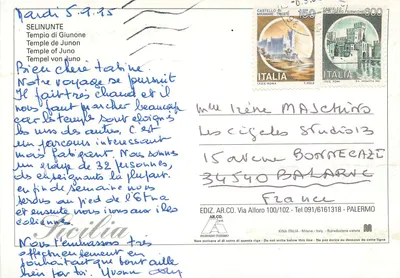 Mardi 5.9.95
SELINUNTE
Tempio di Giunone
Temple de Junon
Temple of Juno
Tempel von Juno
Bien chère tatine.
Notre voyage se poursuit
Il fait très chaud et il
nous faut marcher beaucoup
car les temples sont éloignés
les uns des autres. C'est
un parcours intéressant
mais fatigant. Nous sommes
un groupe de 32 personnes,
des enseignants la plupart.
en fin de semaine nous
serons au pied de l'Etna
et ensuite nous irons aux îles
éoliennes.
Nous t'embrassons très
affectueusement en
souhaitant que tout aille
bien pour toi. Yvonne
Sicilia
150
300
ITALIA
ITALIA
Mlle Irène
Les cigales Studio 13
15 avenue
34540 BALARUC
France
EDIZ. AR.CO. Via Alloro 100/102 - Tel 091/6161318 - PALERMO